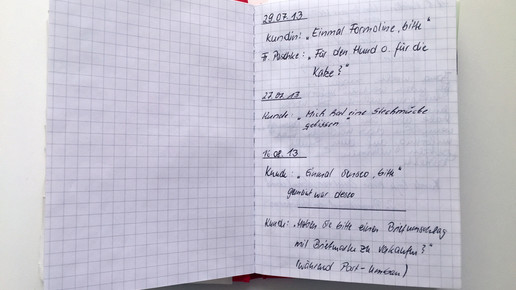 29.07.13
Kundin: „Einmal Formoline, bitte“
Fr. Paschke: „Für den Hund o. für die
Katze?“
27.07.13
Kunde: „Mich hat eine Stechmücke
gebissen“
16.08.13
Kunde: „Einmal , bitte“
gemeint war
Kunde: „Haben Sie bitte einen Briefumschlag
mit Briefmarke zu verkaufen?“
(während Post-Umbau)